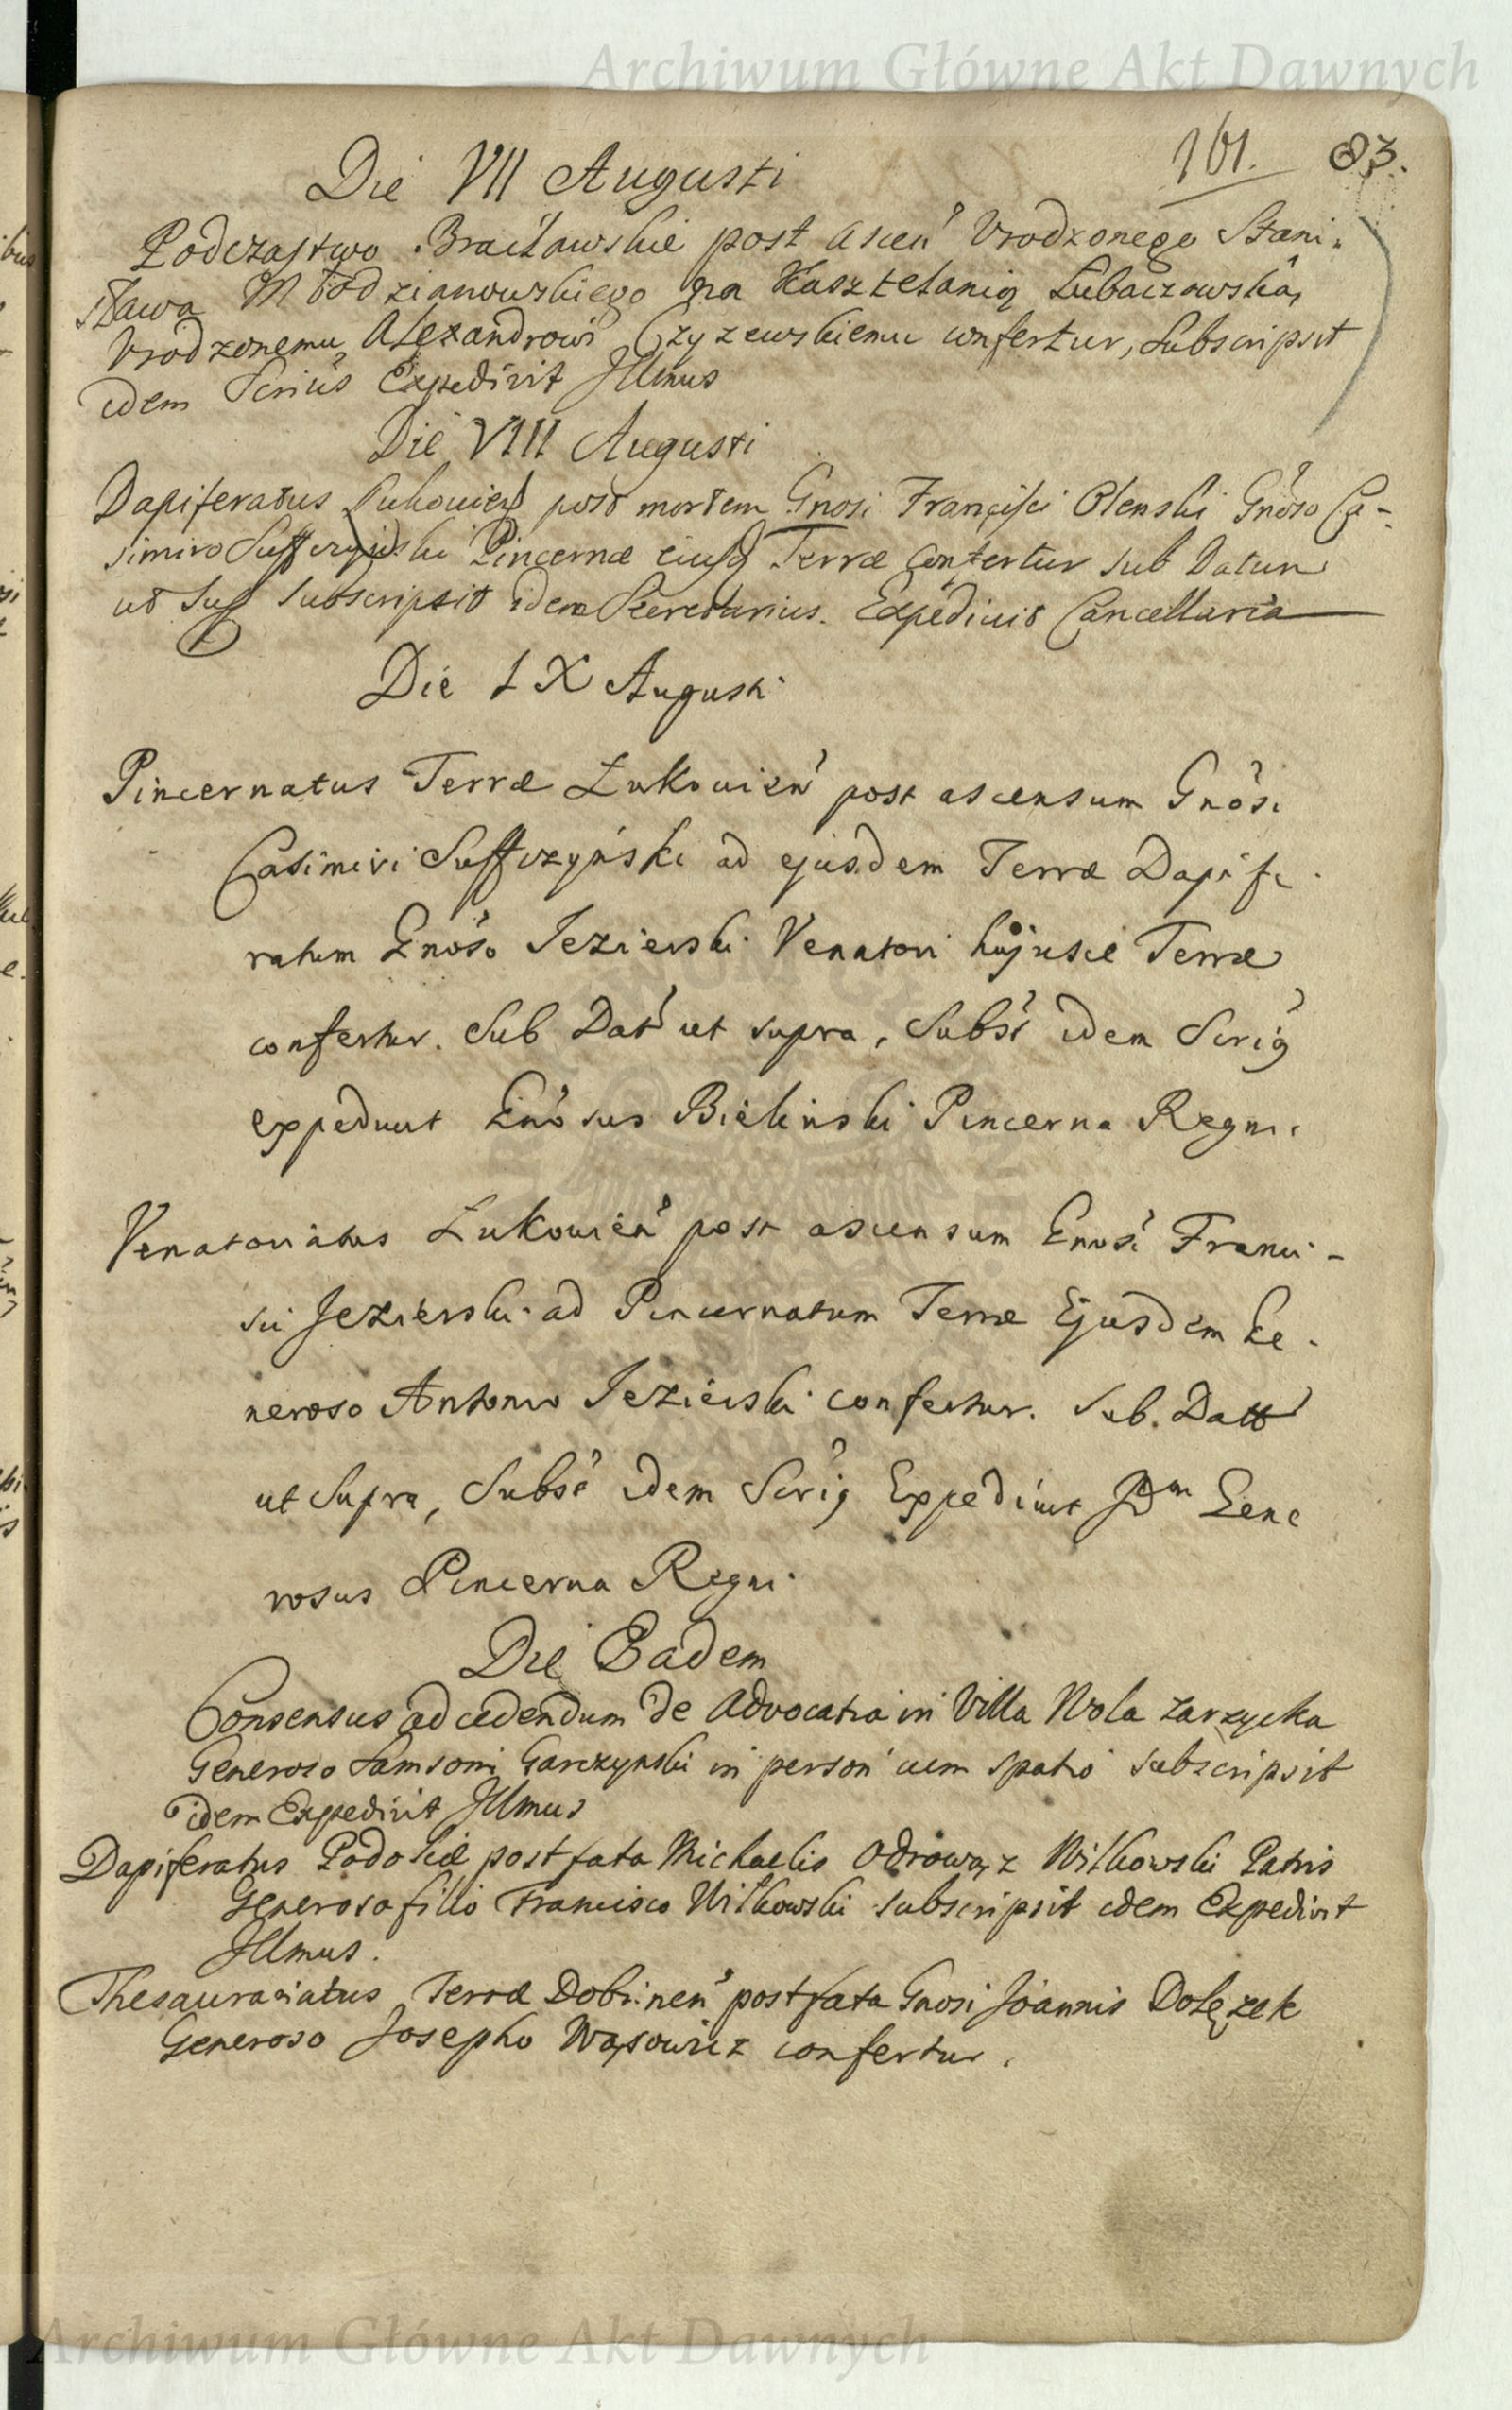 Archiwum Główne Akt Dawnych
161. 83.
Die VII Augusti
Podczastwo Bracławskie post ascen̄ Vrodzonego Stani-
sława Młodzianowskiego na Kasztelanią Lubaczowską,
Vrodzonemu Alexandrowi Czyzewskiemu confertur, Subscripsit
idem Scrius Expedivit Illmus
Die VIII Augusti
Dapiferatus Lukovien̄ post mortem Gnosi Francisci Olenski Gnoso Ca-
simiro Suffczynski Pincernæ eiusq Terræ Confertur sub Datum
ut sup subscripsit idem Secretarius. Expedivit Cancellaria
Die IX Augusti
Pincernatus Terræ Lukovien̄ post ascensum Gnosi
Casimiri Suffczyński ad ejusdem Terræ Dapife-
ratum Gnoso Jezierski Venatori hujusce Terræ
confertur. Sub Dat̄ ut supra, Subst̄ idem Scrig
expedivit Gnosus Bielinski Pincerna Regni.
Venatoriatus Lukovien̄ post ascensum Gnosi Franci-
sci Jezierski ad Pincernatum Terræ Ejusdem Ge-
neroso Antonio Jezierski confertur. Sub. Datt̄
ut Supra, Subst̄ idem Scrig Expedivit Idm Gene
rosus Pincerna Regni
Die Eadem
Consensus ad cedendum de Advocatia in Villa Wola Zarzycka
Generoso Samsoni Garczynski in person̄ cum spatio subscripsit
idem Expedivit Illmus
Dapiferatus Podoliæ post fata Michaelis Odrowąz Witkowski Patris
Generoso filio Francisco Witkowski subscripsit idem Expedivit
Illmus.
Thesaurariatus Terræ Dobrinen̄ post fata Gnosi Joannis Dolęzek
Generoso Josepho Wąsowicz confertur.
Archiwum Główne Akt Dawnych